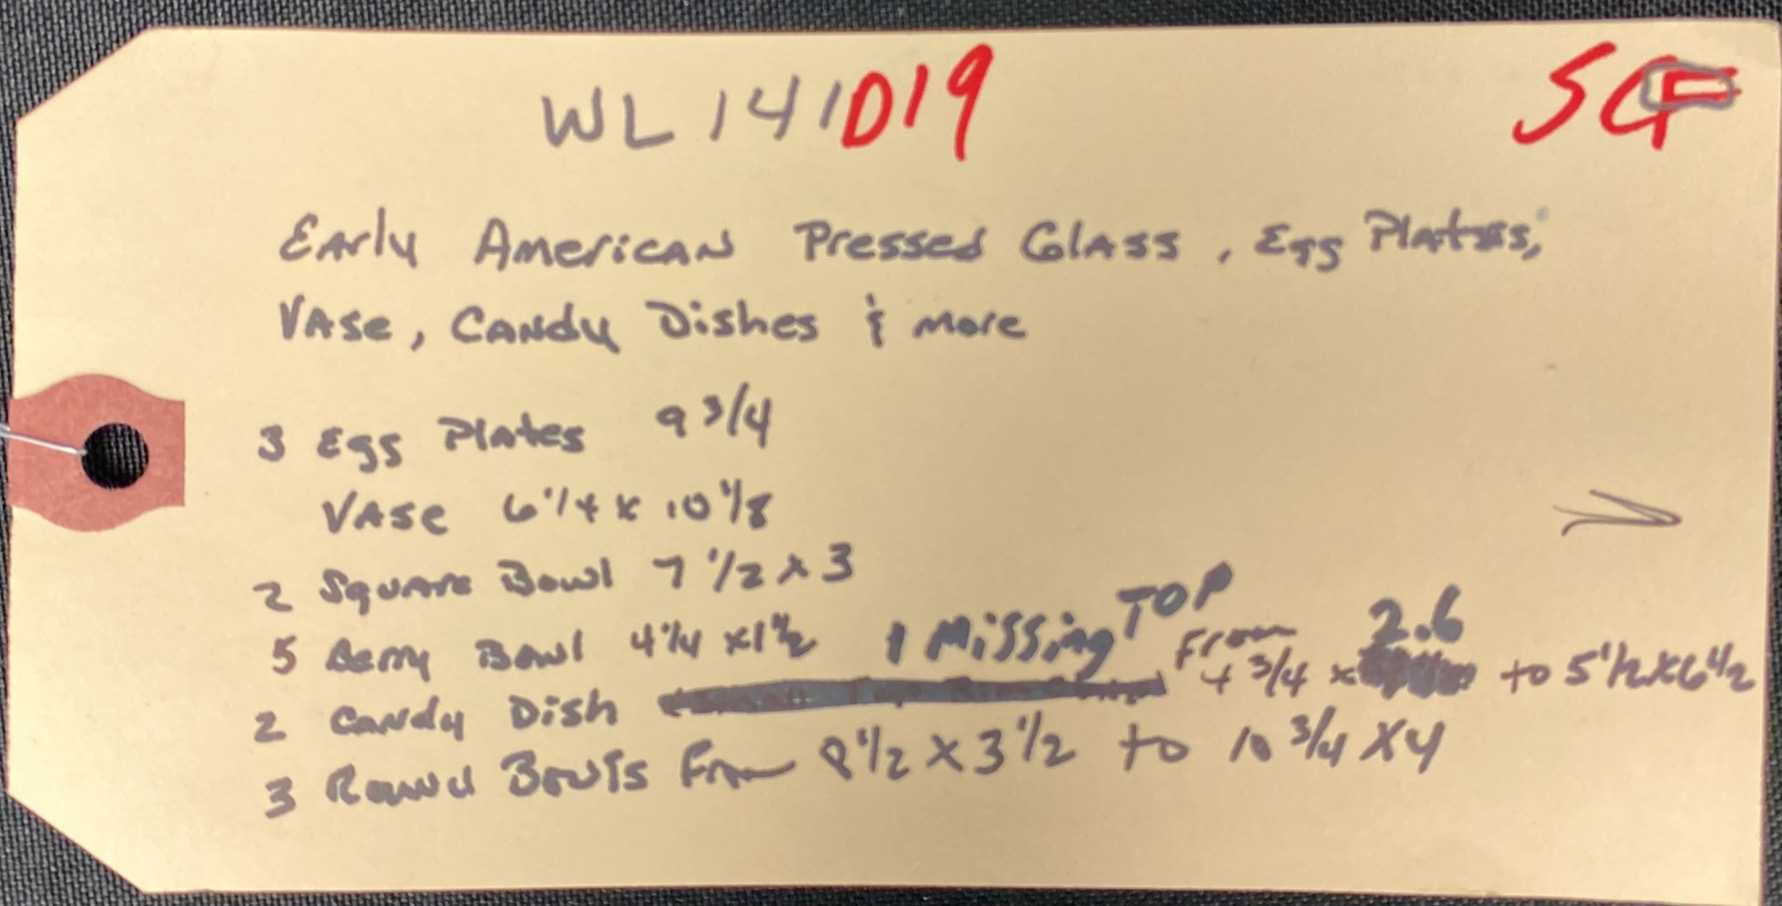 WL 141D19
Early American Pressed Glass, Egg Plates,
Vase, Candy Dishes & more
3 Egg Plates 9 3/4
Vase 6 1/4 x 10 1/8
2 Square Bowl 7 1/2 x 3
5 Berry Bowl 4 1/4 x 1 1/2
1 Missing TOP
2 Candy Dish From 4 3/4 x 2.6 to 5 1/2 x 6 1/2
3 Round Bowls From 8 1/2 x 3 1/2 to 10 3/4 x 4